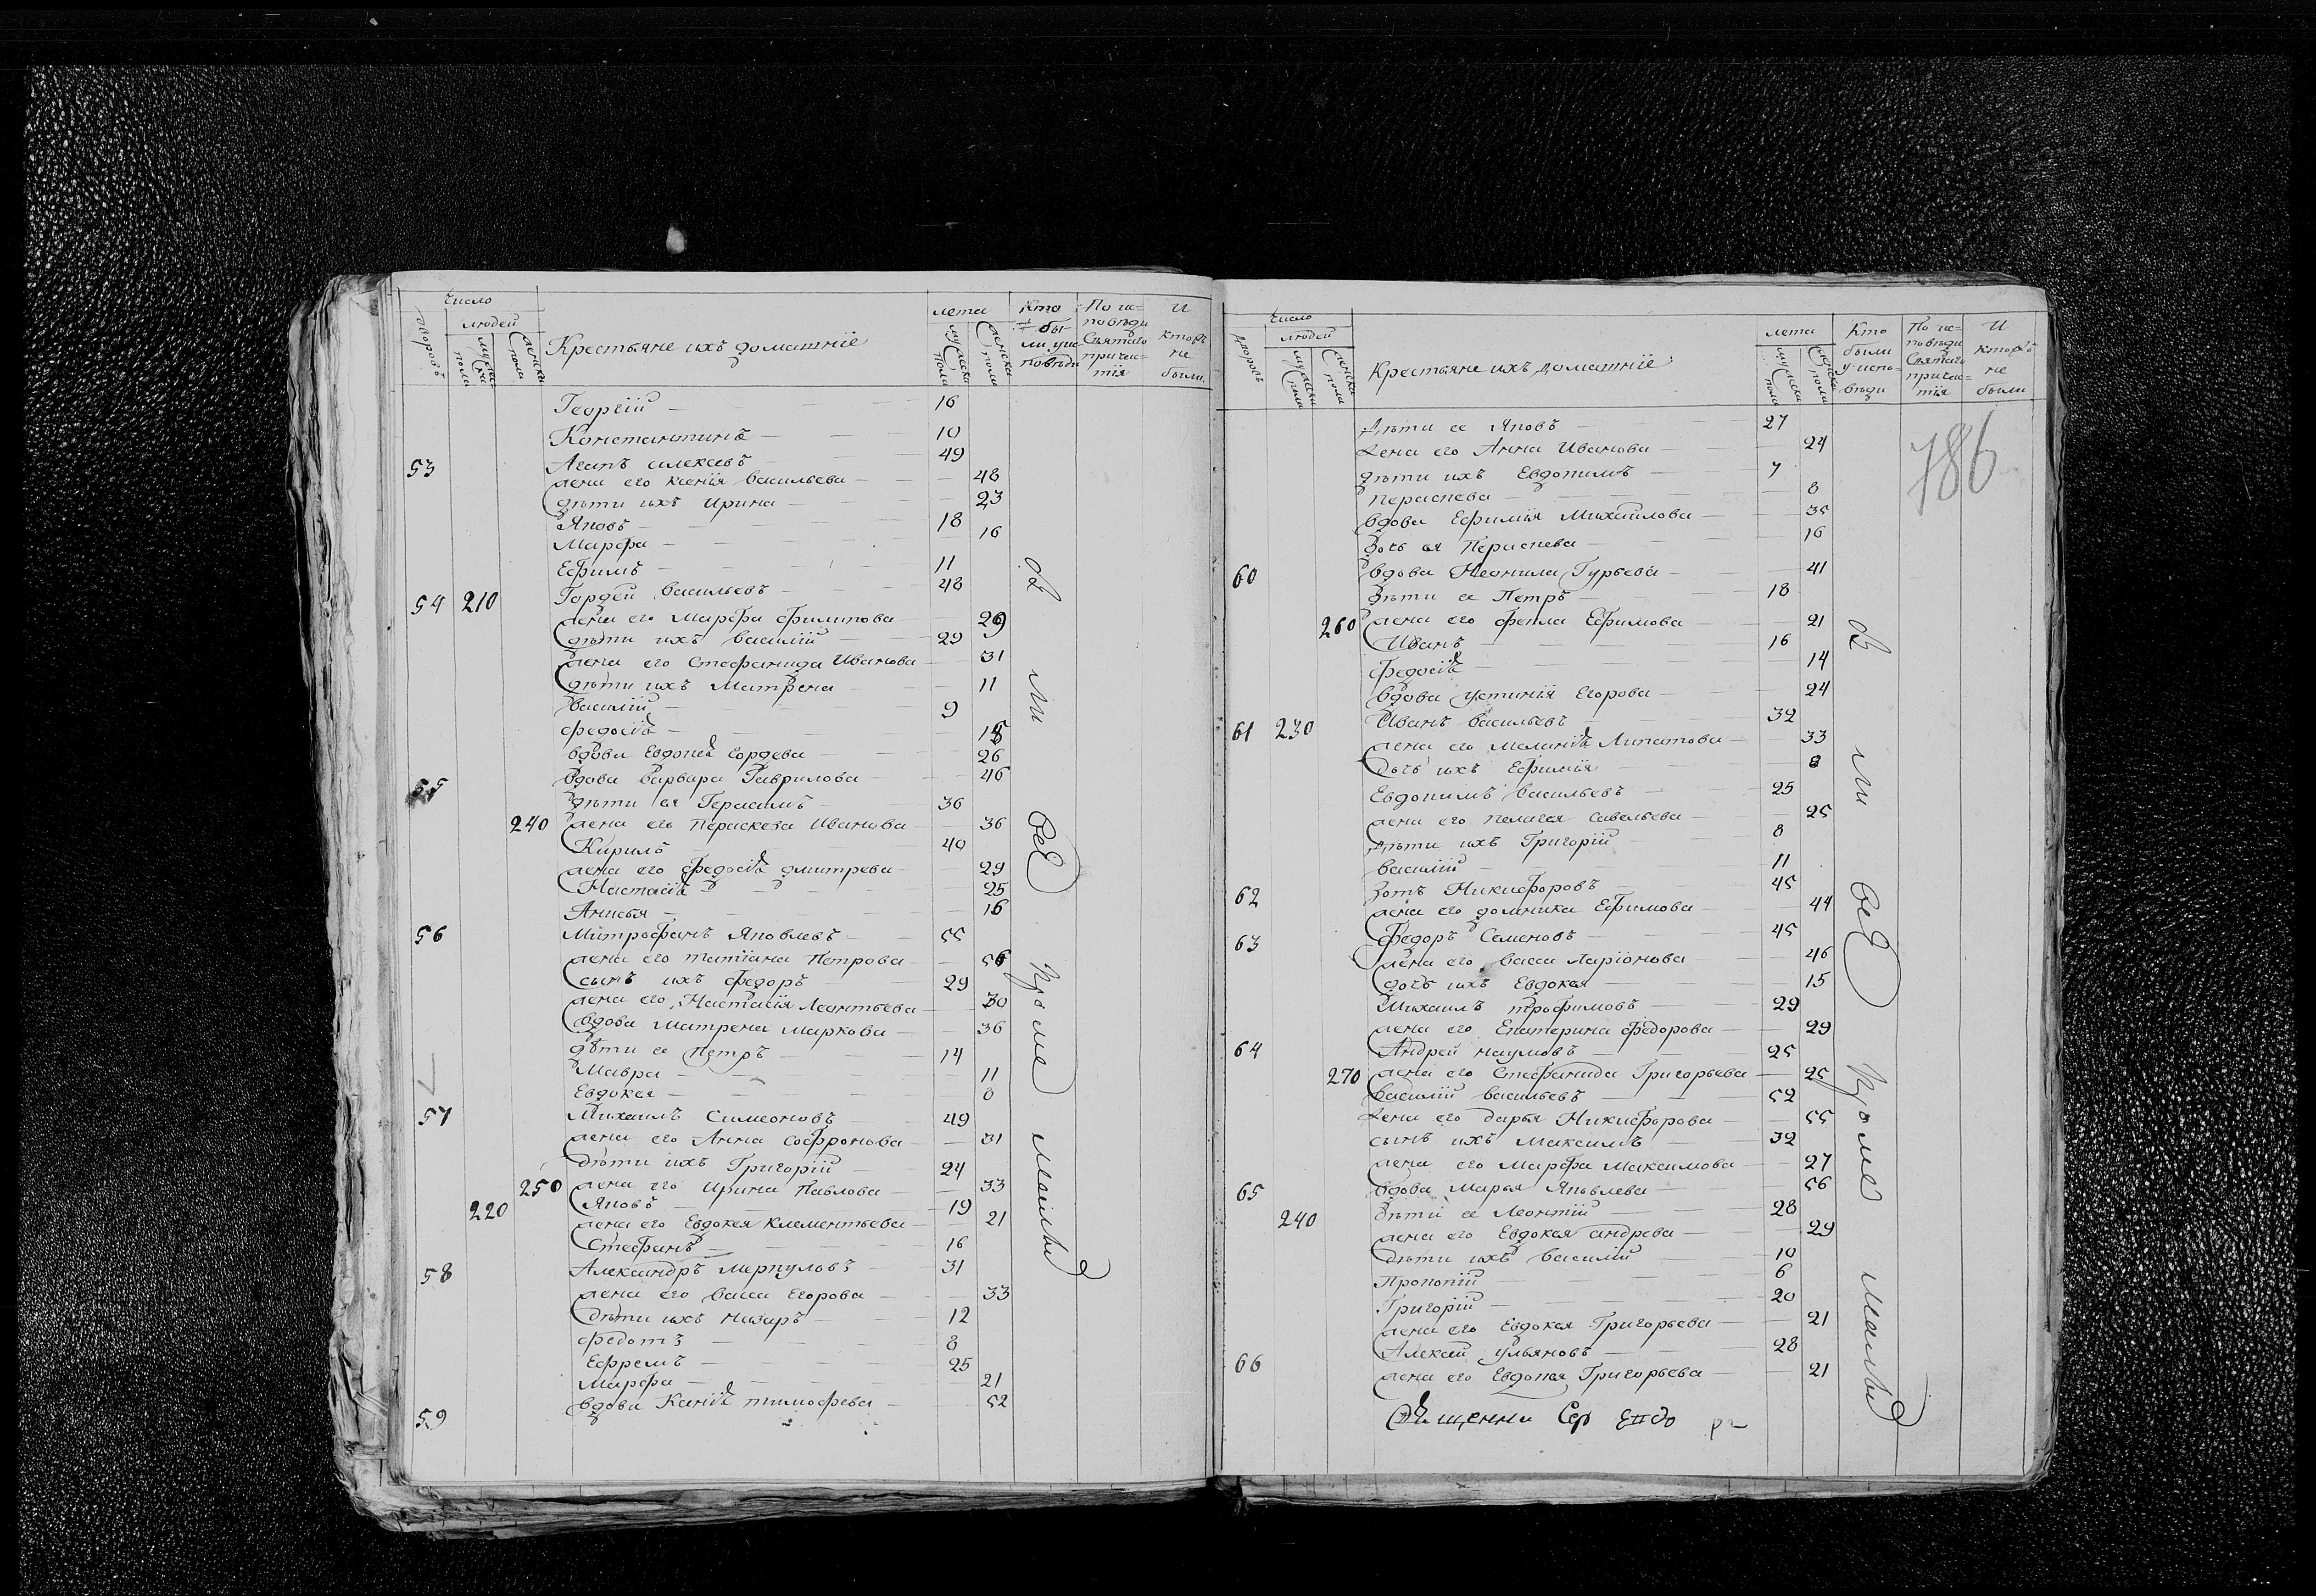 число
людей
дворовъ
мужска поли
женска поли
Крестьяне ихъ домашніе
лета
мужска поли
женска поли
Кто бы-
ли у ис-
повѣди
По ис-
повѣди
Святаго
причас-
тія
И
кторѣ
не
были
Георгій 16
Константинъ 10
53 Агапъ алексевъ 49
жена его ксенія васильева 48
дѣти ихъ Ирина 23
Яковъ 18
Марфа 16
Ефимъ 11
54 210 Гордей васильевъ 48
жена его Марфа филипова
дѣти ихъ василій 29
жена его Стефанида Иванова 31
дѣти ихъ Матрена 11
василій 9
федосіѣ
вдова Евдокеѣ Гордева 26
55 вдова варвара Гаврилова 46
дѣти ея Герасимъ 36
240 жена его Пераскева Иванова 36
Кирилъ 40
жена его федосіѣ дмитрева 29
Настасіѣ 25
Анисья 16
56 Митрофанъ Яковлевъ 55
жена его татіана Петрова 56
сынъ ихъ федоръ 29
жена его Настасія Леонтьева 30
вдова Матрена Маркова 36
дѣти ее Петръ 14
Мавра 11
Евдокея 8
57 Михаилъ Симеоновъ 49
жена его Анна Софронова 31
дѣти ихъ Григорій 24
250 жена его Ирина Павлова 33
220 Яковъ 19
жена его Евдокея Клементьева 21
Стефанъ 16
58 Александръ меркуловъ 31
жена его васса Егорова 33
дѣти ихъ назаръ 12
федотъ 8
Ефремъ 25
Марфа 21
59 вдова Ксеніѣ тимофева 52
въ ли всѣ кроме малыхъ
число
людей
дворовъ
мужска поли
женска поли
Крестьяне ихъ домашніе
лета
мужска поли
женска поли
Кто
были
у испо-
вѣди
По ис-
повѣди
Святаго
причас-
тія
И
кторѣ
не
были
786
дѣти ее Яковъ 27
жена его Анна Иванова 24
дѣти ихъ Евдокимъ 7
Пераскева 8
вдова Ефимія Михайлова 35
дочь ея Пераскева 16
60 вдова Неонила Гурьева 41
дѣти ее Петръ 18
260 жена его фекла Ефимова 21
Иванъ 16
федосіѣ 14
вдова устинія Егорова 24
61 230 Иванъ васильевъ 32
жена его меланіѣ Липатова 33
дочь ихъ Ефимія 8
Евдокимъ васильевъ 25
жена его пелагея савельева 25
дѣти ихъ Григорій 8
василій 11
62 Зотъ Никифоровъ 45
жена его домника Ефимова 44
63 федоръ Семеновъ 45
жена его васса Ларіонова 46
дочь ихъ Евдокея 15
Михаилъ трофимовъ 29
жена его Екатерина федорова 29
64 Андрей наумовъ 25
270 жена его Стефанида Григорьева 25
василій васильевъ 52
жена его дарья Никифорова 55
сынъ ихъ максимъ 32
жена его марфа максимова 27
65 вдова марья Яковлева 56
240 дѣти ее Леонтій 28
жена его Евдокея андрева 29
дѣти ихъ василій 10
Прокопій 6
Григорій 20
жена его Евдокея Григорьева 21
66 Алексей ульяновъ 28
жена его Евдокея Григорьева 21
въ ли всѣ кроме малыхъ